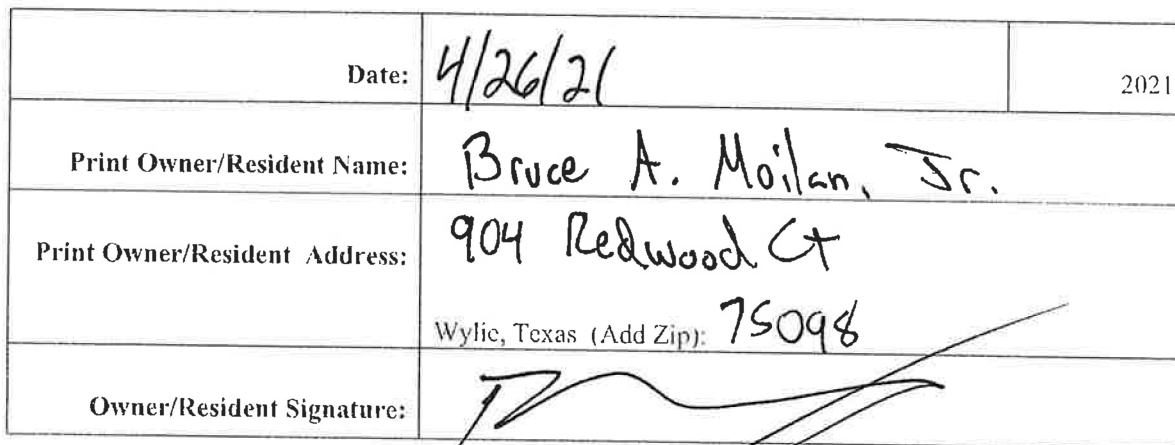 Date: 4/26/21 2021
Print Owner/Resident Name: Bruce A. Moilan, Jr.
Print Owner/Resident Address: 904 Redwood Ct
Wylie, Texas (Add Zip): 75098
Owner/Resident Signature: